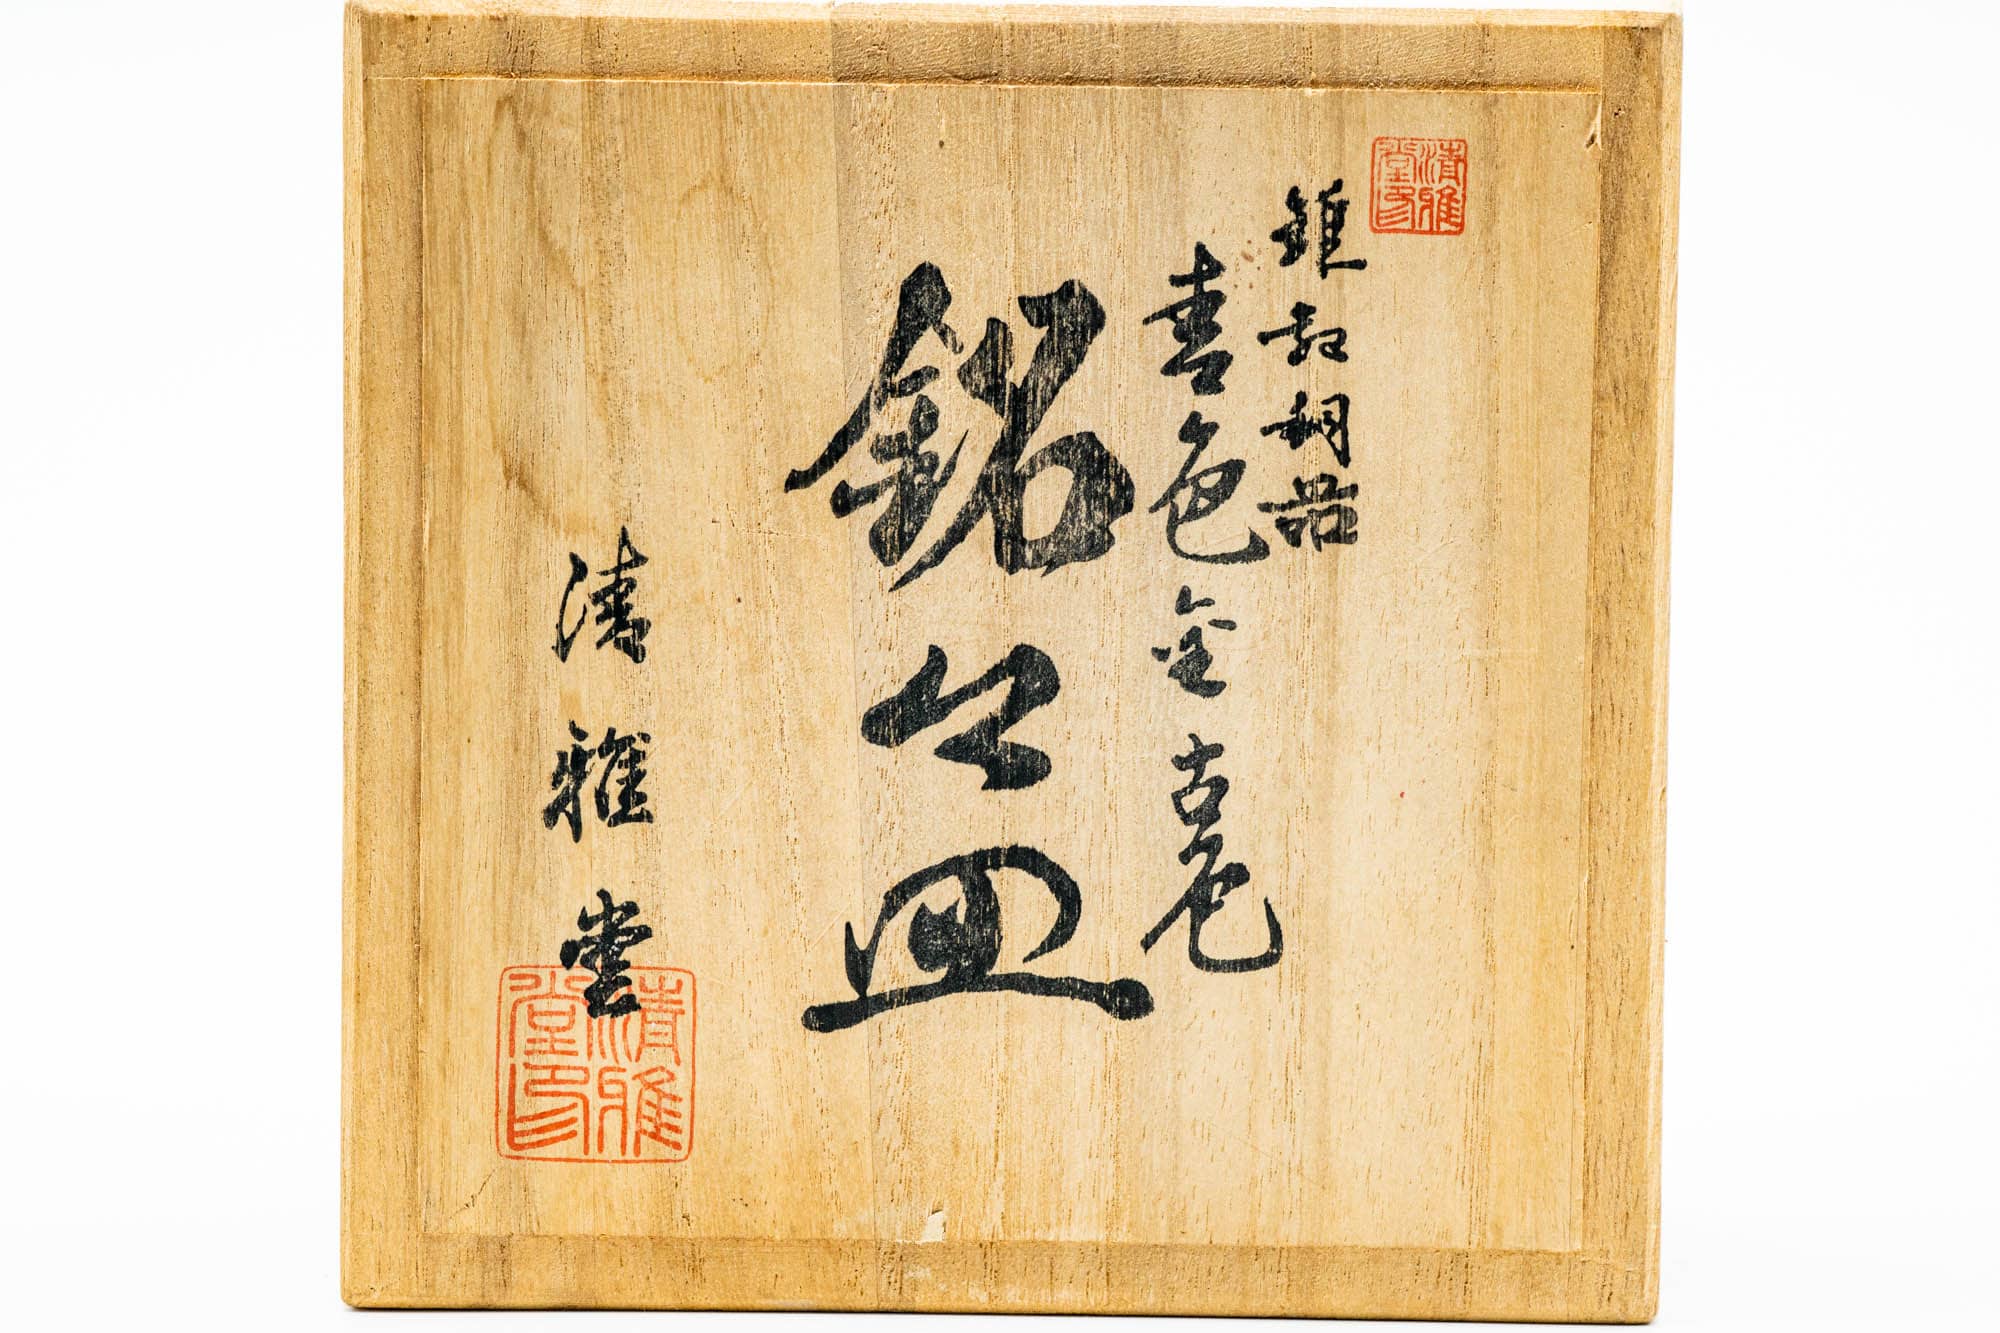 清雅堂印
鎚起銅器
色金古色
銘々皿
清雅堂
清雅堂印